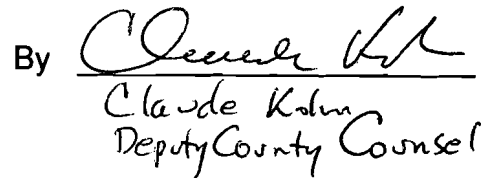 By Claude Kolm
Claude Kolm
Deputy County Counsel